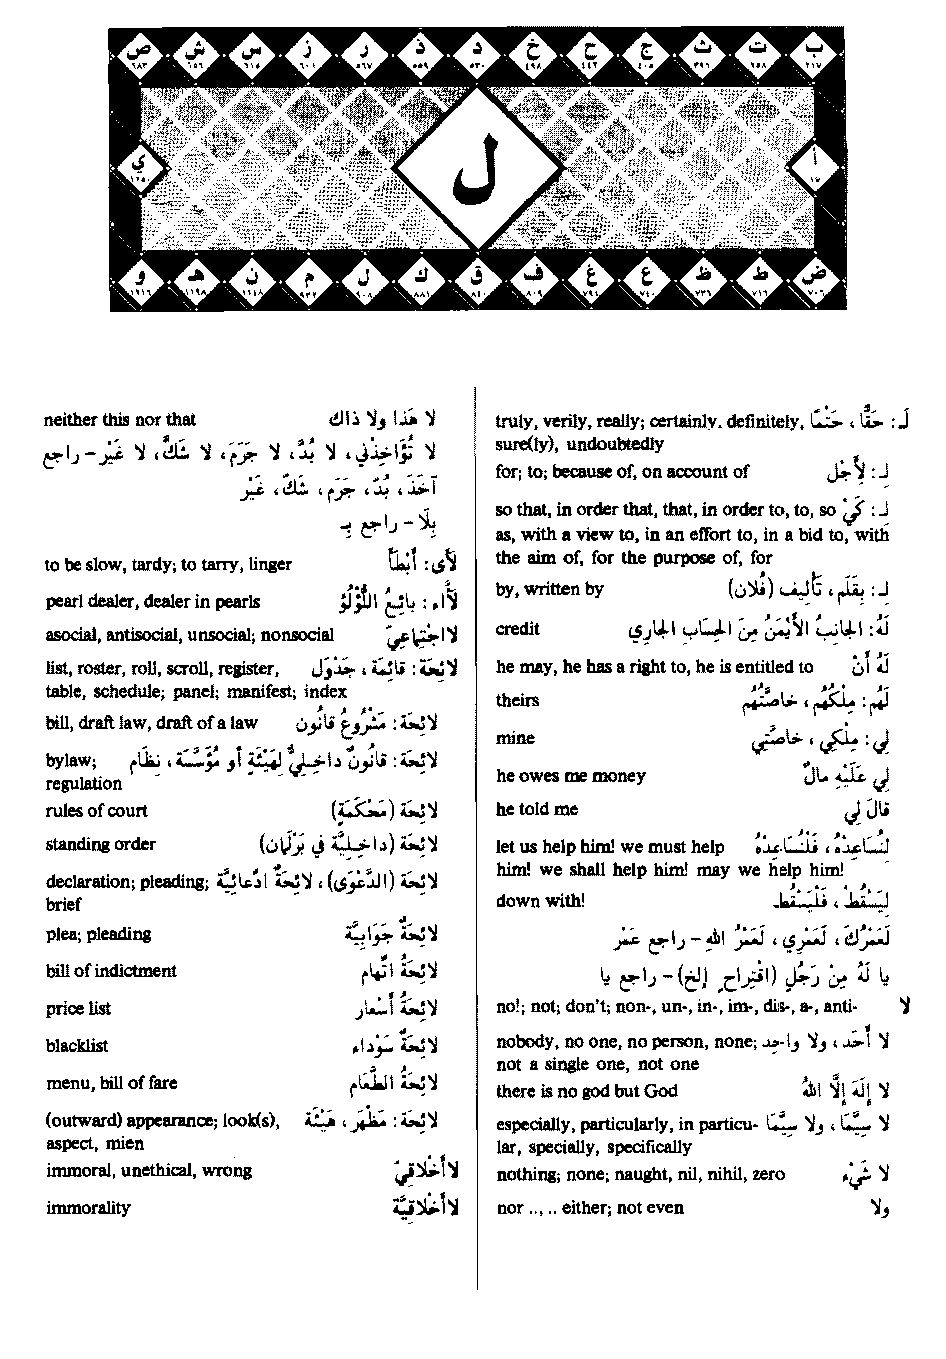 ب ت ث ج ح خ د ذ ر ز س ش ص
٢١٧ ٢٥٨ ٣٩٦ ٤٠٥ ٤٤٢ ٤٩٨ ٥٣٠ ٥٥٩ ٥٦٧ ٦٠٤ ٦١٥ ٦٥٦ ٦٨٣
أ ل ي
١٧
ض ط ظ ع غ ف ق ك ل م ن هـ و
٧٠٦ ٧١٦ ٧٣٦ ٧٤٠ ٧٩٤ ٨٠٩ ٨٤٠ ٨٨١ ٩٠٨ ٩٣٢ ١١٤٨ ١١٩٨ ١٢١٦
لَـ : حَقًّا ، حَتْمًا truly, verily, really; certainly, definitely,
sure(ly), undoubtedly
لِـ : لِأَجْل for; to; because of, on account of
لِـ : كَيْ so that, in order that, that, in order to, to, so
as, with a view to, in an effort to, in a bid to, with
the aim of, for the purpose of, for
لِـ : بِقَلَمِ ، تَأْلِيف (فُلَان) by, written by
لَهُ: الجَانِبُ الأَيْمَنُ مِنَ الحِسَابِ الجَارِي credit
لَهُ أَنْ he may, he has a right to, he is entitled to
لَهُم : مِلْكُهُم ، خَاصَّتُهُم theirs
لِي : مِلْكِي ، خَاصَّتِي mine
لِي عَلَيْهِ مَالٌ he owes me money
قَالَ لِي he told me
لِنُسَاعِدْهُ ، فَلْنُسَاعِدْهُ let us help him! we must help
him! we shall help him! may we help him!
لِيَسْقُطْ ، فَلْيَسْقُطْ down with!
لَعَمْرُكَ ، لَعَمْرِي ، لَعَمْرُ اللهِ - راجع عَمْر
يا لَهُ مِنْ رَجُلٍ (اقْتِراحٍ إلخ) - راجع يا
لا no!; not; don't; non-, un-, in-, im-, dis-, a-, anti-
لا أَحَد ، ولا واحِد nobody, no one, no person, none;
not a single one, not one
لا إِلَهَ إِلَّا اللهُ there is no god but God
لا سِيَّمَا ، ولا سِيَّمَا especially, particularly, in particu-
lar, specially, specifically
لا شَيْء nothing; none; naught, nil, nihil, zero
ولا nor .., .. either; not even
لا هَذا ولا ذاك neither this nor that
لا تُؤَاخِذْنِي ، لا بُدَّ ، لا جَرَمَ ، لا شَكَّ ، لا غَيْر - راجع
آخَذَ ، بُدّ ، جَرَم ، شَكّ ، غَيْر
بِلَا - راجع بِـ
لَأَى : أَبْطَأَ to be slow, tardy; to tarry, linger
لَأَّاء : بائِعُ اللُّؤْلُؤ pearl dealer, dealer in pearls
لااجْتِماعِيّ asocial, antisocial, unsocial; nonsocial
لائِحَة : قائِمَة ، جَدْوَل list, roster, roll, scroll, register,
table, schedule; panel; manifest; index
لائِحَة : مَشْرُوعُ قانُون bill, draft law, draft of a law
لائِحَة : قانُونٌ داخِلِيٌّ لِهَيْئَةٍ أو مُؤَسَّسَة ، نِظَام bylaw;
regulation
لائِحَة (مَحْكَمَةٍ) rules of court
لائِحَة (داخِلِيَّة في بَرْلَمان) standing order
لائِحَة (الدَّعْوَى) ، لائِحَةٌ ادِّعائِيَّة declaration; pleading;
brief
لائِحَةٌ جَوابِيَّة plea; pleading
لائِحَةُ اتِّهام bill of indictment
لائِحَةُ أَسْعار price list
لائِحَةٌ سَوْداء blacklist
لائِحَةُ الطَّعَام menu, bill of fare
لائِحَة : مَظْهَر ، هَيْئَة (outward) appearance; look(s),
aspect, mien
لاأَخْلاقِيّ immoral, unethical, wrong
لاأَخْلاقِيَّة immorality